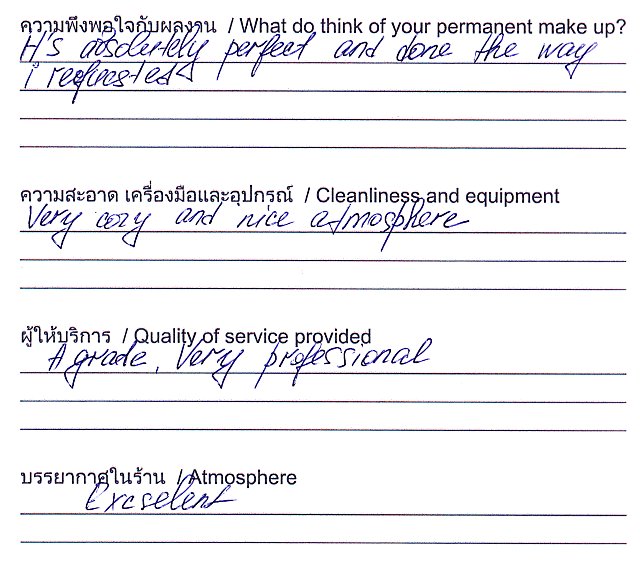 ความพึงพอใจกับผลงาน / What do think of your permanent make up?
It's absolutely perfect and done the way
i requested
ความสะอาด เครื่องมือและอุปกรณ์ / Cleanliness and equipment
Very cozy and nice atmosphere
ผู้ให้บริการ / Quality of service provided
A grade, Very professional
บรรยากาศในร้าน / Atmosphere
Excselent